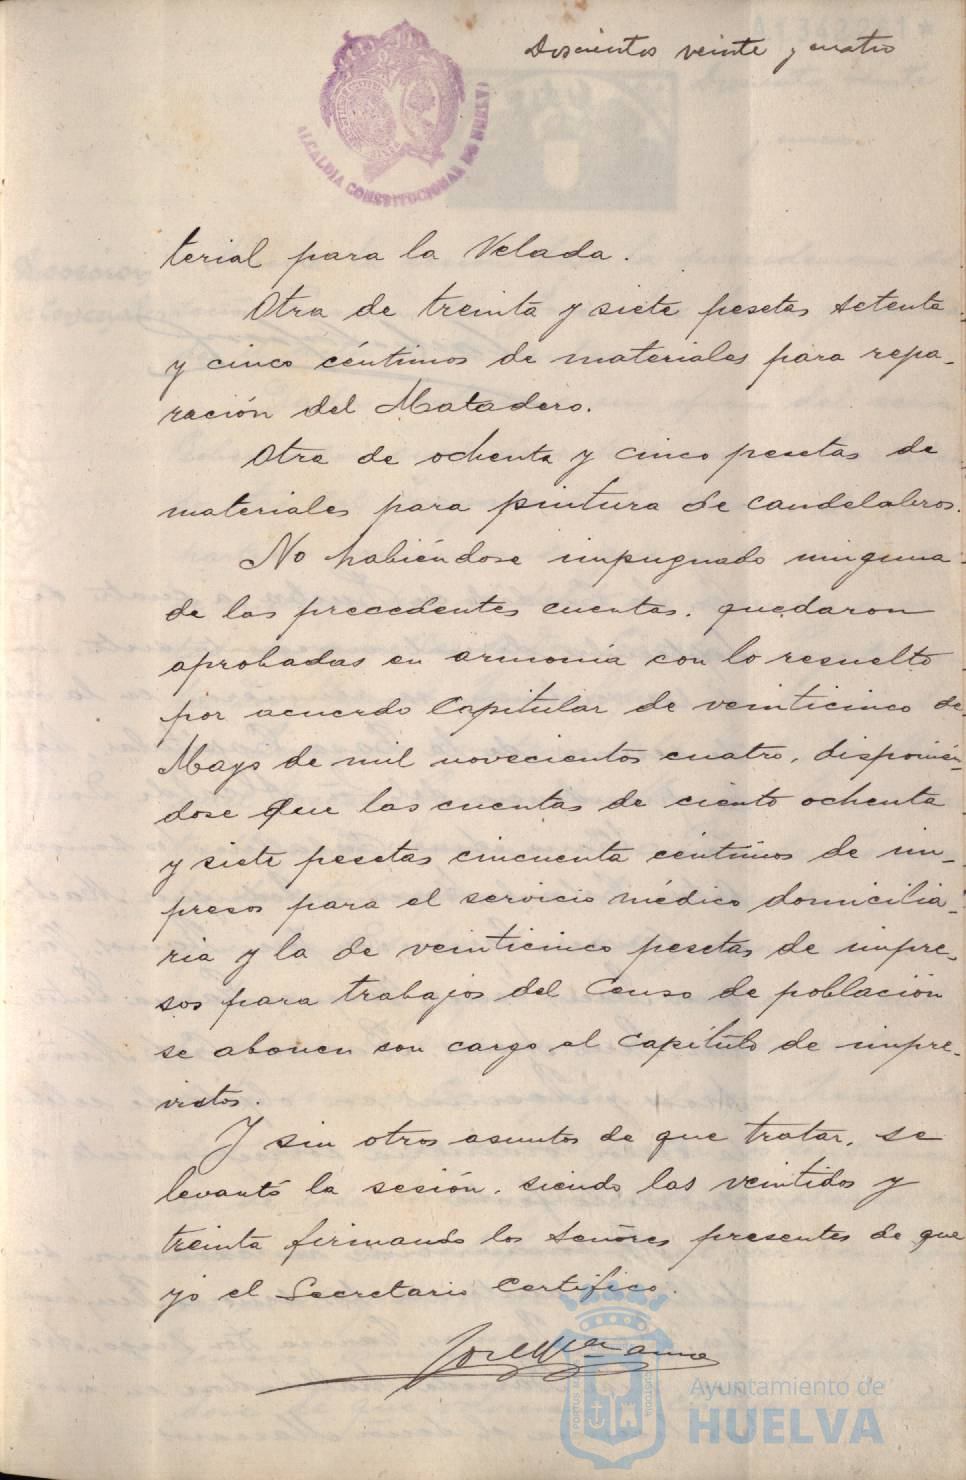 Doscientos veinte y cuatro
ALCALDIA CONSTITUCIONAL DE HUELVA
terial para la Velada.
Otra de treinta y siete pesetas setenta
y cinco céntimos de materiales para repa-
ración del Matadero.
Otra de ochenta y cinco pesetas de
materiales para pintura de candelabros.
No habiéndose impugnado ninguna
de las precedentes cuentas, quedaron
aprobadas en armonía con lo resuelto
por acuerdo Capitular de veinticinco de
Mayo de mil novecientos cuatro, disponién-
dose que las cuentas de ciento ochenta
y siete pesetas cincuenta céntimos de im-
presos para el servicio médico domicilia-
ria y la de veinticinco pesetas de impre-
sos para trabajos del Censo de población
se abonen con cargo al Capítulo de impre-
vistos.
Y sin otros asuntos de que tratar, se
levantó la sesión, siendo las veintidos y
treinta firmando los Señores presentes de que
yo el Secretario Certifico.
Ayuntamiento de
HUELVA